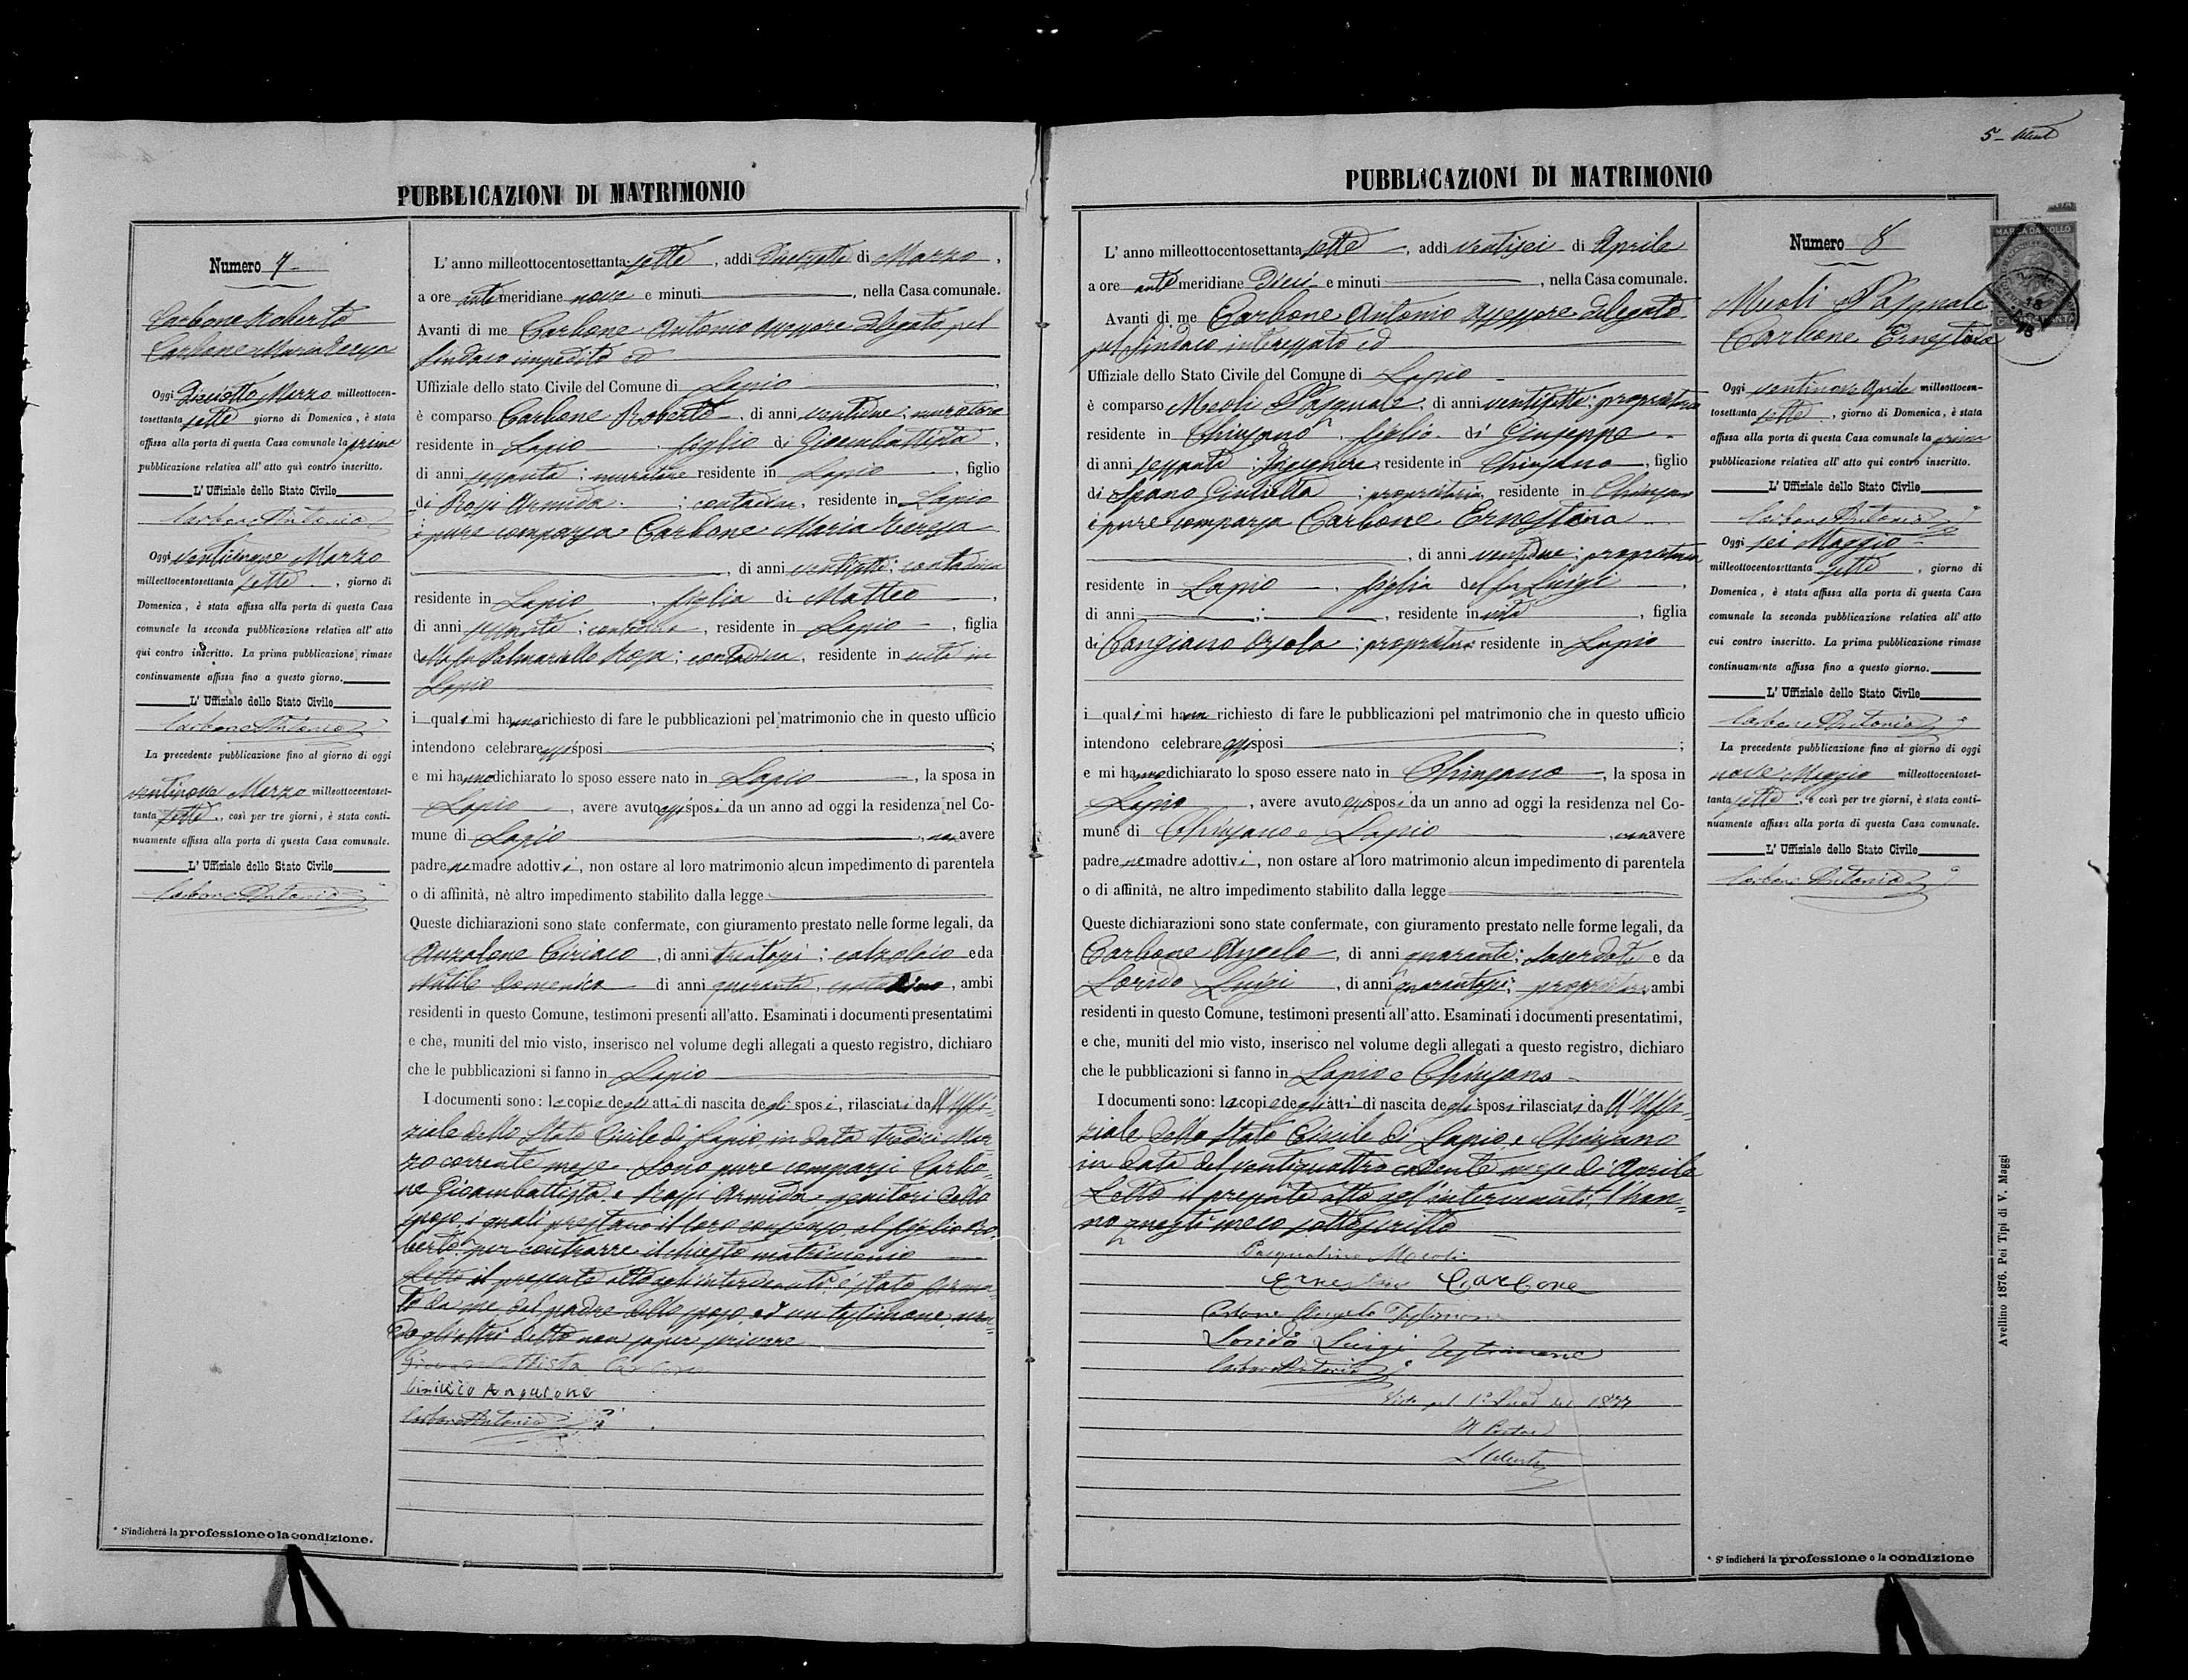 5-
PUBBLICAZIONI DI MATRIMONIO
Numero 7
Carbone Roberto
Carbone Maria Teresa
Oggi Diciotto Marzo milleottocen-
tosettanta sette giorno di Domenica, è stata
affissa alla porta di questa Casa comunale la prima
pubblicazione relativa all' atto quì contro inscritto.
L' Uffiziale dello Stato Civile
Carbone Antonio
Oggi venticinque Marzo
milleottocentosettanta sette, giorno di
Domenica, è stata affissa alla porta di questa Casa
comunale la seconda pubblicazione relativa all' atto
qui contro inscritto. La prima pubblicazione rimase
continuamente affissa fino a questo giorno.
L' Uffiziale dello Stato Civile
Carbone Antonio
La precedente pubblicazione fino al giorno di oggi
ventinove Marzo milleottocentoset-
tanta sette, così per tre giorni, è stata conti-
nuamente affissa alla porta di questa Casa comunale.
L' Uffiziale dello Stato Civile
Carbone Antonio
* S'indicherà la professione o la condizione.
L' anno milleottocentosettanta sette, addì Diecissette di Marzo,
a ore ante meridiane nove e minuti , nella Casa comunale.
Avanti di me Carbone Antonio Assessore delegato pel
Sindaco impedito ed
Uffiziale dello stato Civile del Comune di Lapio,
è comparso Carbone Roberto, di anni ventidue; muratore
residente in Lapio, figlio di Giambattista,
di anni sessanta; muratore residente in Lapio, figlio
di Rossi Armida; contadina, residente in Lapio
è pure comparsa Carbone Maria Teresa
, di anni ventisette; contadina
residente in Lapio, figlia di Matteo,
di anni sessanta; contadino, residente in Lapio, figlia
della fu Palmariello Rosa; contadina, residente in vita in
Lapio
i quali mi hanno richiesto di fare le pubblicazioni pel matrimonio che in questo ufficio
intendono celebrare essi sposi ;
e mi hanno dichiarato lo sposo essere nato in Lapio, la sposa in
Lapio, avere avuto essi sposi da un anno ad oggi la residenza nel Co-
mune di Lapio, non avere
padre ne madre adottivi, non ostare al loro matrimonio alcun impedimento di parentela
o di affinità, nè altro impedimento stabilito dalla legge
Queste dichiarazioni sono state confermate, con giuramento prestato nelle forme legali, da
Anzalone Ciriaco, di anni trentasei; calzolaio e da
Nutile Domenico di anni quaranta, contadino, ambi
residenti in questo Comune, testimoni presenti all'atto. Esaminati i documenti presentatimi
e che, muniti del mio visto, inserisco nel volume degli allegati a questo registro, dichiaro
che le pubblicazioni si fanno in Lapio
I documenti sono: le copie degli atti di nascita degli sposi, rilasciati dall'Uffi-
ziale dello Stato Civile di Lapio in data tredici Mar-
zo corrente mese. Sono pure comparsi Carbo-
ne Giambattista e Rossi Armida genitori dello
sposo, i quali prestano il loro consenso al figlio Ro-
berto per contrarre il chiesto matrimonio
Letto il presente atto agli intervenuti, è stato firma-
to da me dal padre dello sposo, ed un testimone, aven-
do gli altri detto non saper scrivere
Giovan Battista Carbone
Ciriaco Anzalone
Carbone Antonio
PUBBLICAZIONI DI MATRIMONIO
L' anno milleottocentosettanta sette, addì ventisei di Aprile
a ore ante meridiane Dieci e minuti , nella Casa comunale.
Avanti di me Carbone Antonio Assessore delegato
pel Sindaco interessato ed
Uffiziale dello Stato Civile del Comune di Lapio
è comparso Meoli Pasquale, di anni ventisette; proprietario
residente in Chiusano, figlio di Giuseppe,
di anni sessanta; Ingegnere, residente in Chiusano, figlio
di Spano Giulietta; proprietaria, residente in Chiusano
è pure comparsa Carbone Ernestina
, di anni ventidue; proprietaria
residente in Lapio, figlia del fu Luigi,
di anni ; , residente in vita , figlia
di Cangiano Orsola; proprietaria residente in Lapio
i quali mi hanno richiesto di fare le pubblicazioni pel matrimonio che in questo ufficio
intendono celebrare essi sposi ;
e mi hanno dichiarato lo sposo essere nato in Chiusano, la sposa in
Lapio, avere avuto essi sposi da un anno ad oggi la residenza nel Co-
mune di Chiusano e Lapio, non avere
padre ne madre adottivi, non ostare al loro matrimonio alcun impedimento di parentela
o di affinità, ne altro impedimento stabilito dalla legge
Queste dichiarazioni sono state confermate, con giuramento prestato nelle forme legali, da
Carbone Angelo, di anni quaranta; Sacerdote e da
Lorido Luigi, di anni quarantasei; proprietario, ambi
residenti in questo Comune, testimoni presenti all'atto. Esaminati i documenti presentatimi,
e che, muniti del mio visto, inserisco nel volume degli allegati a questo registro, dichiaro
che le pubblicazioni si fanno in Lapio e Chiusano
I documenti sono: le copie degli atti di nascita degli sposi rilasciati dall'Uffi-
ziale dello Stato Civile di Lapio e Chiusano
in data del ventiquattro cadente mese di Aprile
Letto il presente atto agl'intervenuti, l'han-
no questi meco sottoscritto
Pasqualino Meoli
Ernestina Carbone
Carbone Angelo Testimone
Lorido Luigi Testimone
Carbone Antonio
Visto pel 1877
Numero 8
Meoli Pasquale
Carbone Ernestina
Oggi ventinove Aprile milleottocen-
tosettanta sette, giorno di Domenica, è stata
affissa alla porta di questa Casa comunale la prima
pubblicazione relativa all' atto qui contro inscritto.
L' Uffiziale dello Stato Civile
Carbone Antonio
Oggi sei Maggio
milleottocentosettanta sette, giorno di
Domenica, è stata affissa alla porta di questa Casa
comunale la seconda pubblicazione relativa all' atto
cui contro inscritto. La prima pubblicazione rimase
continuamente affissa fino a questo giorno.
L' Uffiziale dello Stato Civile
Carbone Antonio
La precedente pubblicazione fino al giorno di oggi
nove Maggio milleottocentoset-
tanta sette, e così per tre giorni, è stata conti-
nuamente affissa alla porta di questa Casa comunale.
L' Uffiziale dello Stato Civile
Carbone Antonio
* S' indicherà la professione o la condizione
MARCA DA BOLLO
Avellino 1876. Pei Tipi di V. Maggi